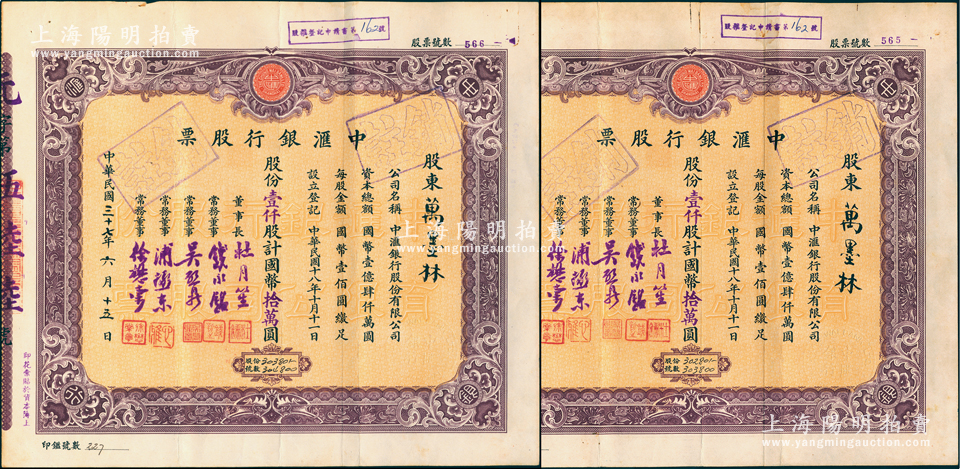 上海陽明拍賣
www.yangmingauction.com
股權登記申請書第162號
股票號數 566
中滙銀行股票
股東 萬墨林
公司名稱 中滙銀行股份有限公司
資本總額 國幣壹億肆仟萬圓
每股金額 國幣壹佰圓繳足
設立登記 中華民國十八年十月十一日
股份壹仟股計國幣拾萬圓
董事長 杜月笙
常務董事
常務董事
常務董事
常務董事 徐懋棠
中華民國三十七年六月十五日
股份號數 303801 304800
印鑑號數 227
印花票貼於資本簿上
上海陽明拍賣
www.yangmingauction.com
股權登記申請書第162號
股票號數 565
中滙銀行股票
股東 萬墨林
公司名稱 中滙銀行股份有限公司
資本總額 國幣壹億肆仟萬圓
每股金額 國幣壹佰圓繳足
設立登記 中華民國十八年十月十一日
股份壹仟股計國幣拾萬圓
董事長 杜月笙
常務董事
常務董事
常務董事
常務董事 徐懋棠
股份號數 302801 303800
上海陽明拍賣
www.yangmingauction.com